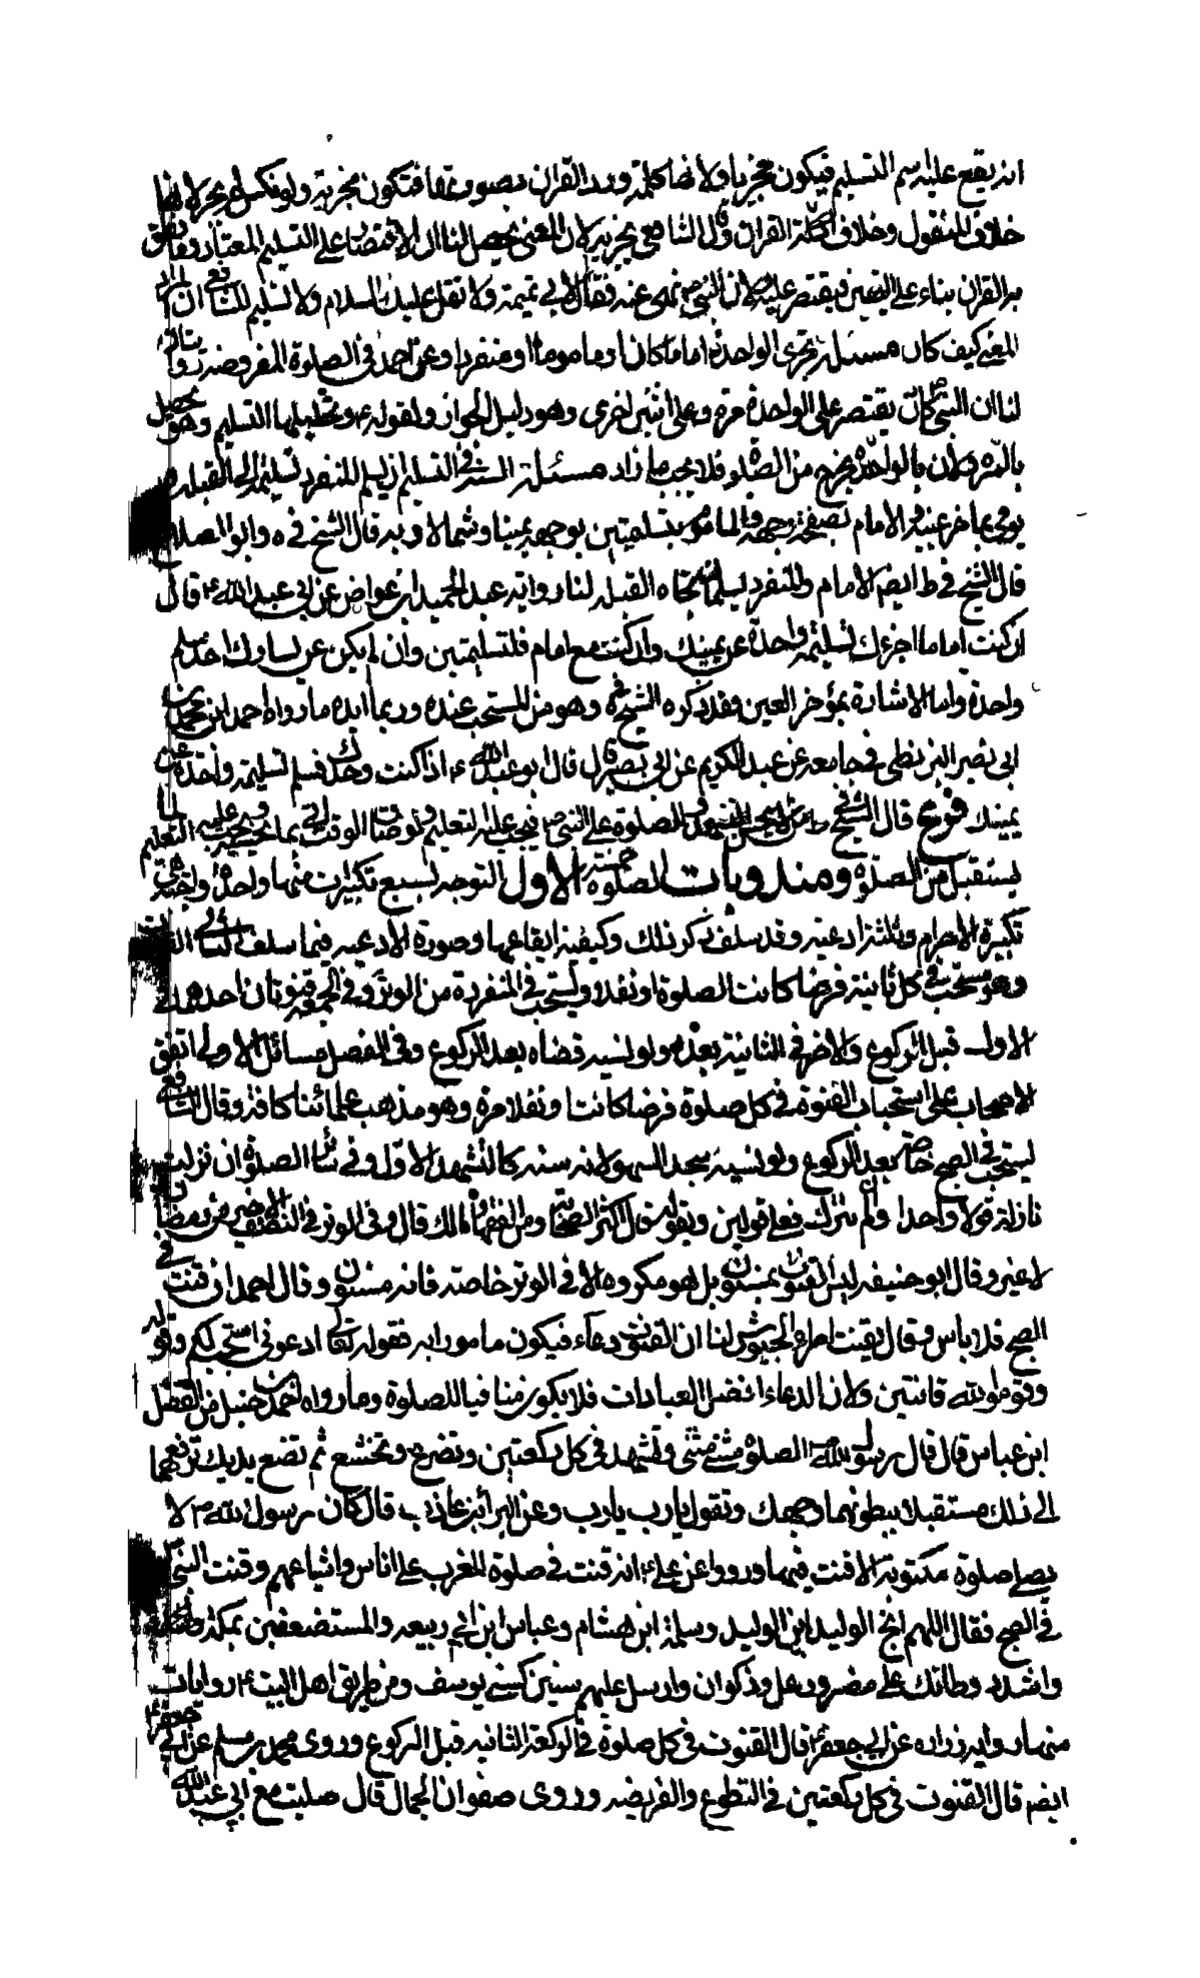 انه يقع عليه اسم التسليم فيكون مجزيا ولانها كلمة ورد القران بصورتها فتكون مجزية ولو نكس لم يجز لانها
خلاف المنقول وخلاف القران وقال الشافعي يجزيه لان المعنى يحصل لنا ان الاقتصار على التسليم المعتاد وما نطق
به القران بناء على اليقين فيقتصر عليه ولان النبي ص نهى عنه فقال لابي تميمة ولا تقل عليك السلام ولا نسلم للشافعي ان المراد
المعنى كيف كان مسئلة يجزى الواحدة اماما كان او ماموما او منفردا وعن احمد في الصلوة المفروضة روايتان
لنا ان النبي ص كان يقتصر على الواحدة مرة وعلى اثنتين اخرى وهو دليل الجواز ولقوله ع وتحليلها التسليم وهو يحصل
بالمرة ولان بالواحدة يخرج من الصلوة فلا يجب ما زاد مسئلة السنة في التسليم ان يسلم المنفرد تسليمة الى القبلة و
يومى بمؤخر عينيه والامام بصفحة وجهه والماموم بتسلمتين بوجهه يمينا وشمالا وبه قال الشيخ في ه وابو الصلاح
قال الشيخ في ط ايضا الامام والمنفرد يسلمان تجاه القبلة لنا رواية عبد الحميد ابن عواض عن ابي عبد الله ع قال
ان كنت اماما اجزءك تسليمة واحدة عن يمينك وان كنت مع امام فتسليمتين وان لم يكن عن يسارك احد فسلم
واحدة واما الاشارة بمؤخر العين فقد ذكره الشيخ في ه وهو من المستحب عنده وربما ايده ما رواه احمد ابن محمد بن
ابي نصير البزنطى في جامعه عن عبد الكريم عن ابي بصير قال قال ابو عبد الله ع اذا كنت وحدك فسلم تسليمة واحدة عن
يمينك فروع قال الشيخ من لا يحسن التشهد والصلوة على النبي ص يجب عليه التعليم ولو ضاق الوقت اتى بما يحسنه ويجب عليه التعلم لما
يستقبل من الصلوة ومندوبات الصلوة خمسة الاول التوجه بسبع تكبيرات منها واحدة واجبة هي
تكبيرة الاحرام وبثلثة ادعية وقد سلف ذكر ذلك وكيفية ايقاعها وصورة الادعية فيما سلف الثاني القنوت
وهو مستحب في كل ثانية فرضا كانت الصلوة او نفلا ويستحب في المنفردة من الوتر وفي الجمعة قنوتان احدهما في
الاولى قبل الركوع والاخر في الثانية بعده ولو نسيه قضاه بعد الركوع وفي الفصل مسائل الاولى اتفق
الاصحاب على استحباب القنوت في كل صلوة فرضا كانت او نفلا مرة وهو مذهب علمائنا كافة وقال الشافعي
يستحب في الصبح خاصة بعد الركوع ولو نسيه سجد السهو لانه سنة كالتشهد الاول وفي سائر الصلوة ان نزلت
نازلة قولا واحدا وان لم تنزل فعلى قولين وبقوله قال اكثر الصحابة ومن الفقهاء مالك قال وفي الوتر في النصف الاخير من رمضان
لا غير وقال ابو حنيفه ليس القنوت بمسنون بل هو مكروه الا في الوتر خاصة فانه مسنون وقال احمد ان قنت في
الصبح فلا باس وقال يقنت امراء الجيوش لنا ان القنوت دعاء فيكون مامورا به لقوله تعالى ادعوني استجب لكم وقوله
وقوموا لله قانتين ولان الدعاء افضل العبادات فلا يكون منافيا للصلوة وما رواه احمد بن حنبل عن الفضل
ابن عباس قال قال رسول الله ص الصلوة مثنى مثنى وتشهد في كل ركعتين وتضرع وتخشع ثم تضع يديك ترفعهما
الى ذلك مستقبلا ببطونهما وجهك وتقول يارب يارب وعن البراء بن عازب قال كان رسول الله ص لا
يصلى صلوة مكتوبة الا قنت فيها ورووا عن علي ع انه قنت في صلوة المغرب على اناس واشياعهم وقنت النبي ص
في الصبح فقال اللهم انج الوليد ابن الوليد وسلمة ابن هشام وعباس ابن ابي ربيعه والمستضعفين بمكة
واشدد وطاتك على مضر ورعل وذكوان وارسل عليهم سنين كسنى يوسف ومن طريق اهل البيت ع روايات
منها رواية زراره عن ابي جعفر ع قال القنوت في كل صلوة في الركعة الثانية قبل الركوع وروى محمد بن مسلم عن ابي جعفر ع
ايضا قال القنوت في كل ركعتين في التطوع والفريضه وروى صفوان الجمال قال صليت مع ابي عبد الله